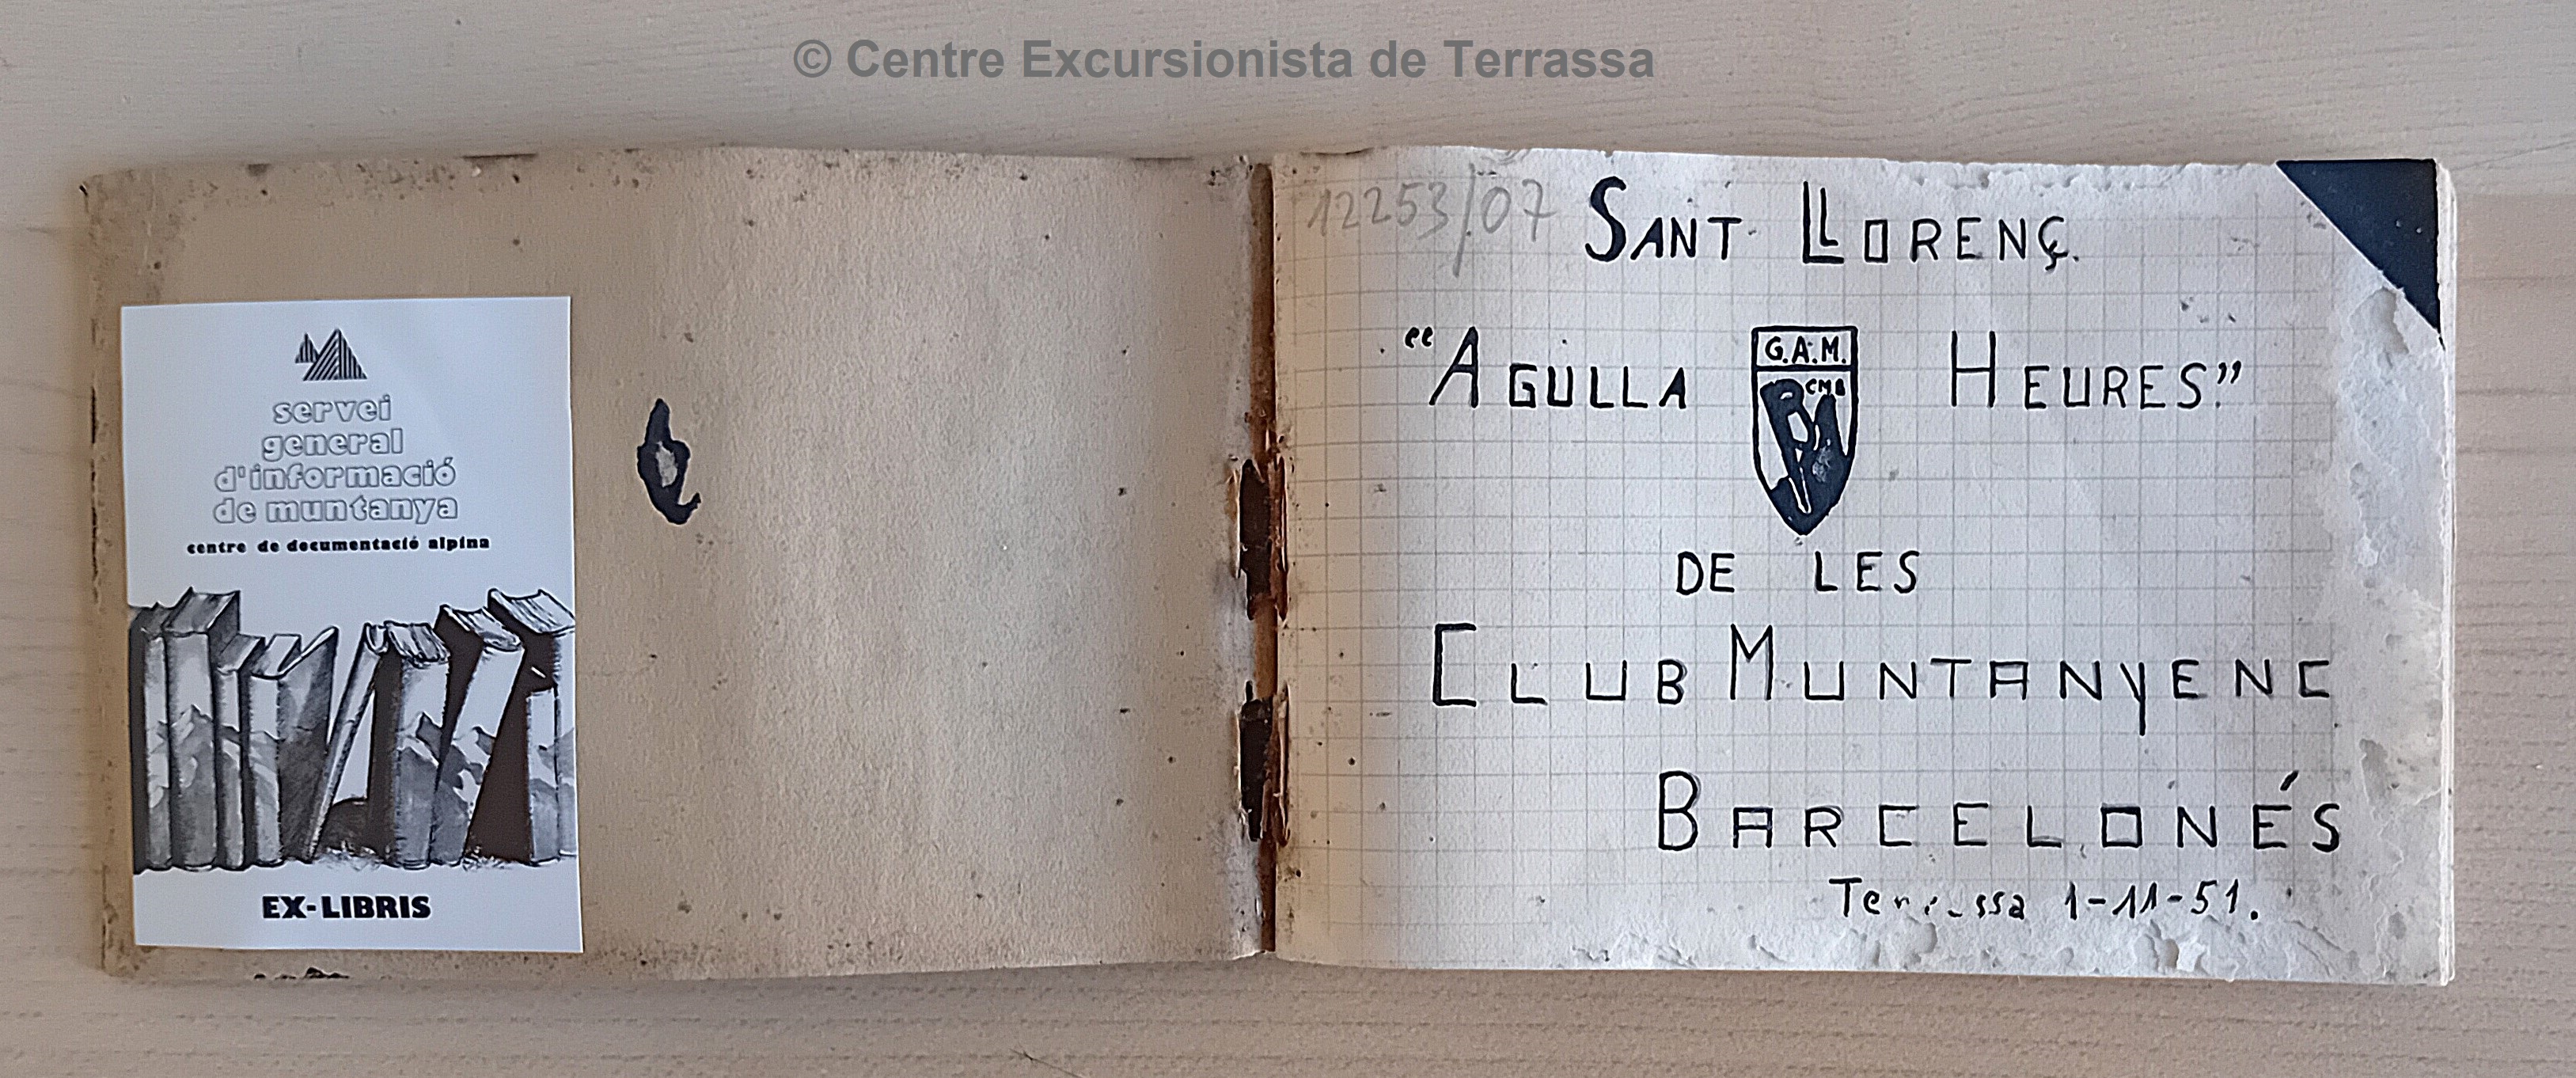 © Centre Excursionista de Terrassa
servei
general
d'informació
de muntanya
centre de documentació alpina
EX-LIBRIS
12253/07
SANT LLORENÇ.
“AGULLA HEURES”
G.A.M.
CMB
DE LES
CLUB MUNTANYENC
BARCELONÉS
Terrassa 1-11-51.